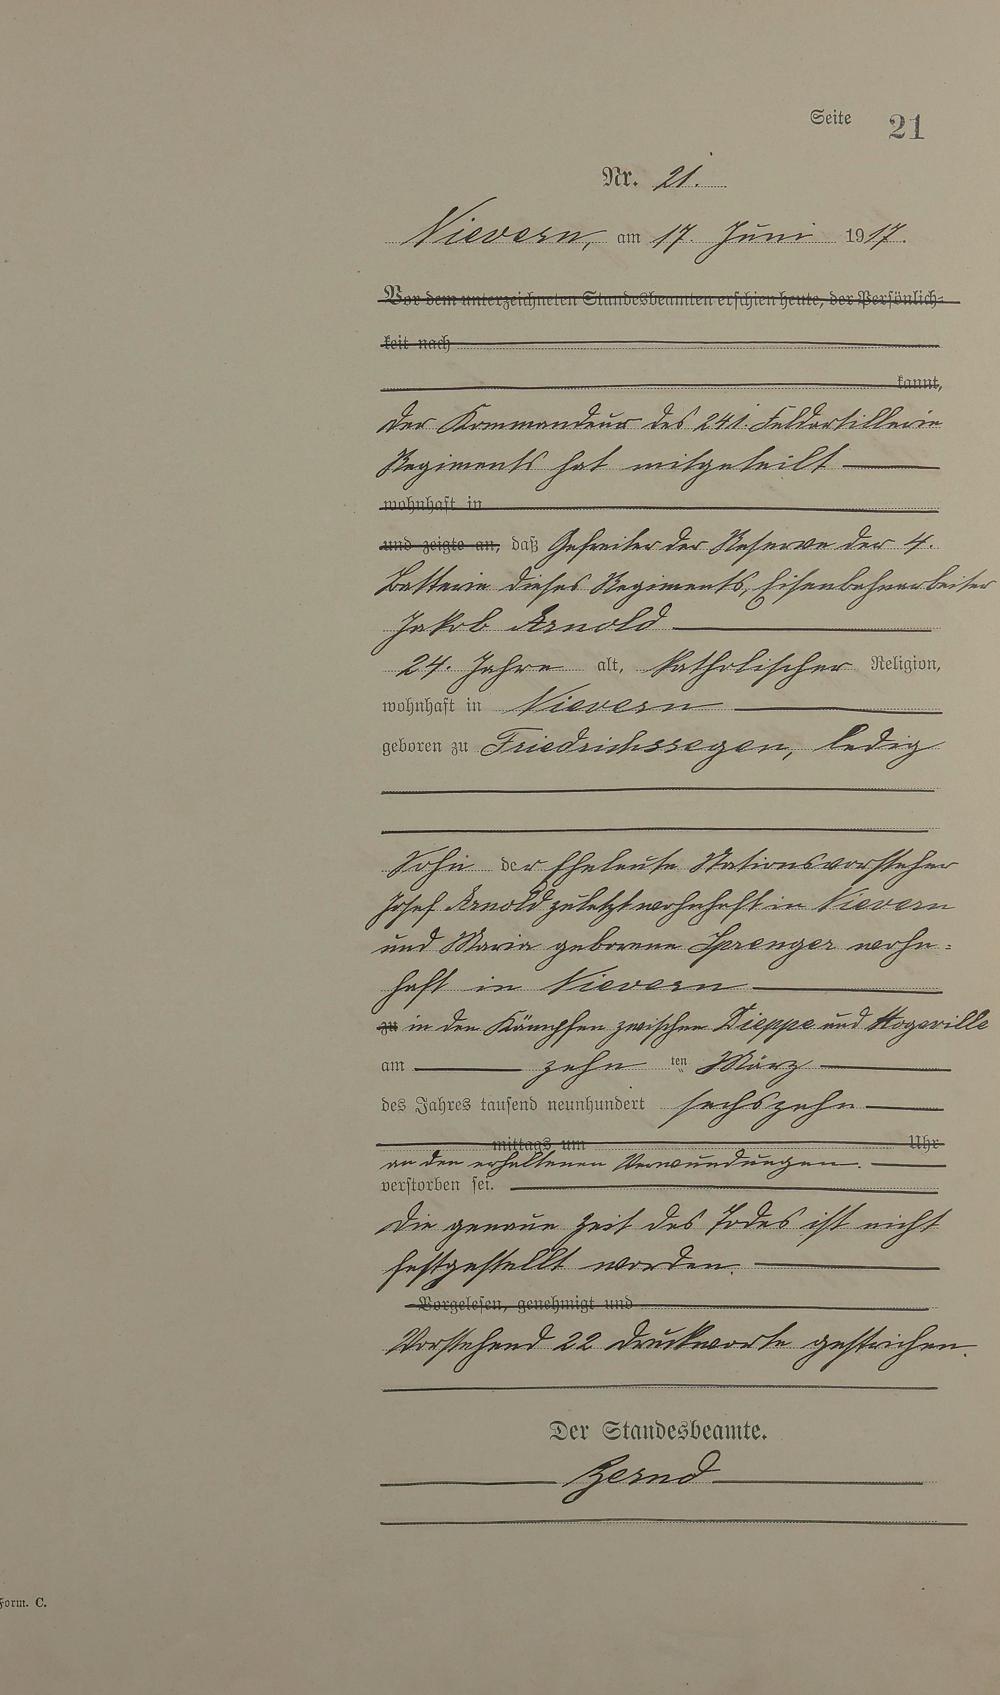 Seite 21
Nr. 21.
Nievern, am 17. Juni 1917.
Vor dem unterzeichneten Standesbeamten erschien heute, der Persönlich-
keit nach
kannt,
der Kommandeur des 241. Feldartillerie
Regiments hat mitgeteilt
wohnhaft in
und zeigte an, daß Gefreiter der Reserve der 4.
Batterie dieses Regiments, Eisenbahnarbeiter
Jakob Arnold
24. Jahre alt, katholischer Religion,
wohnhaft in Nievern
geboren zu Friedrichssegen, ledig
Sohn der Eheleute Stationsvorsteher
Josef Arnold zuletzt wohnhaft in Nievern
und Maria geborene Sprenger wohn-
haft in Nievern
zu in den Kämpfen zwischen Dieppe und Hogeville
am zehn ten März
des Jahres tausend neunhundert sechszehn
mittags um Uhr
an den erhaltenen Verwundungen.
verstorben sei.
Die genaue Zeit des Todes ist nicht
festgestellt worden.
Vorgelesen, genehmigt und
Vorstehend 22 Druckworte gestrichen.
Der Standesbeamte.
Zernd
Form. C.